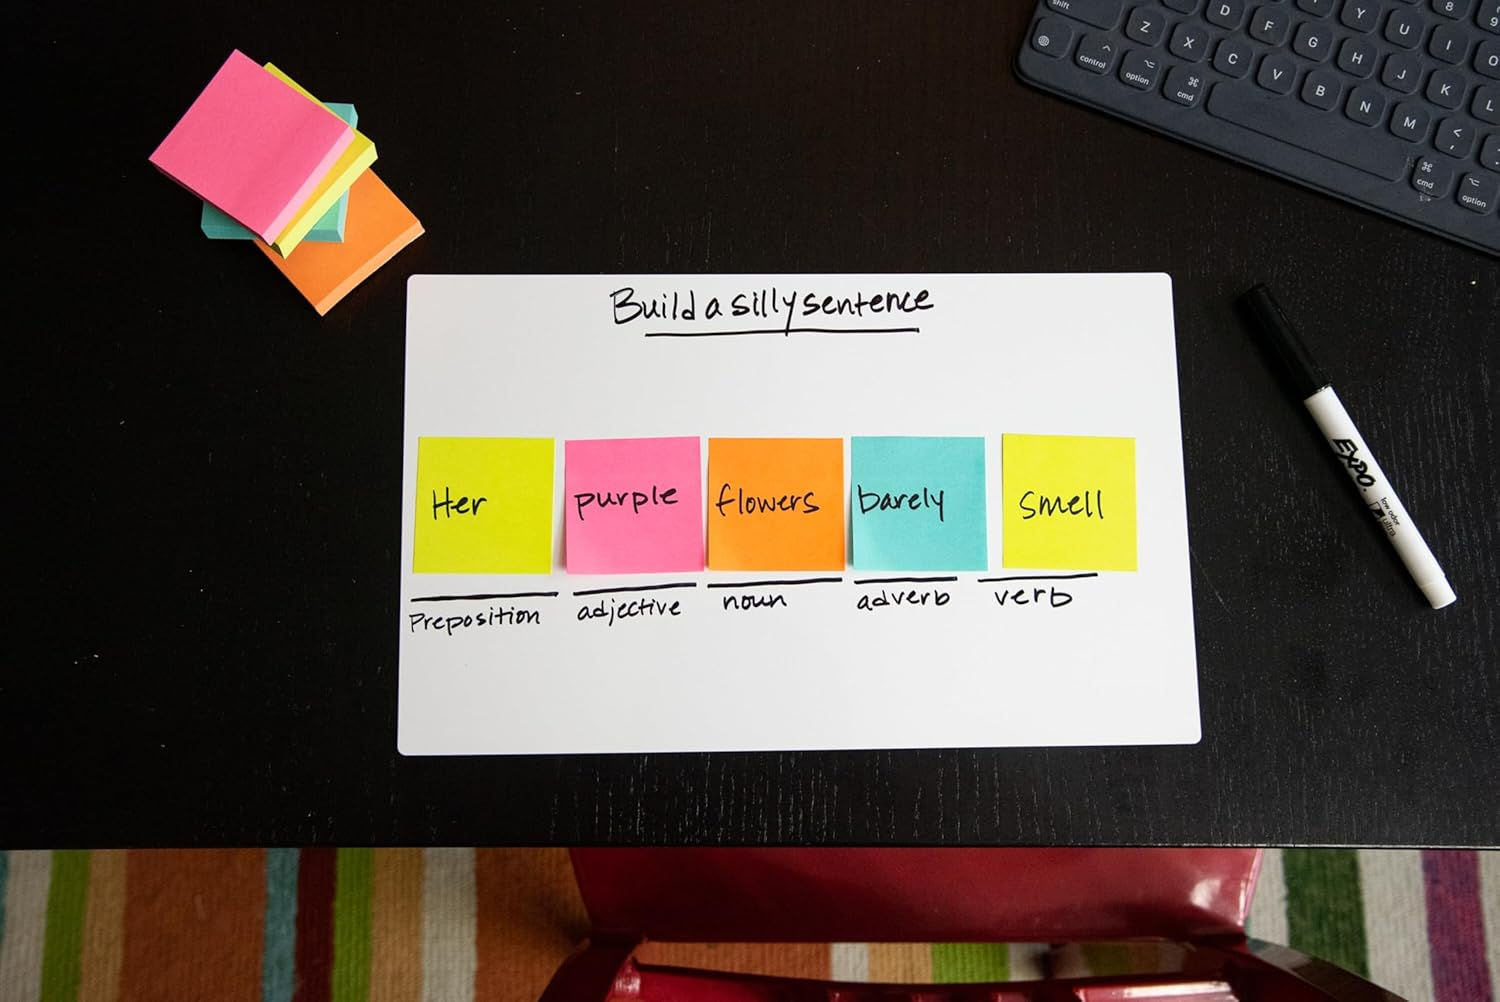 shift Z D F Y U 8 9
control option cmd X C V G H J I O
B N M K L
< ,
cmd option
Build a silly sentence
Her purple flowers barely smell
Preposition adjective noun adverb verb
EXPO
low odor
ultra